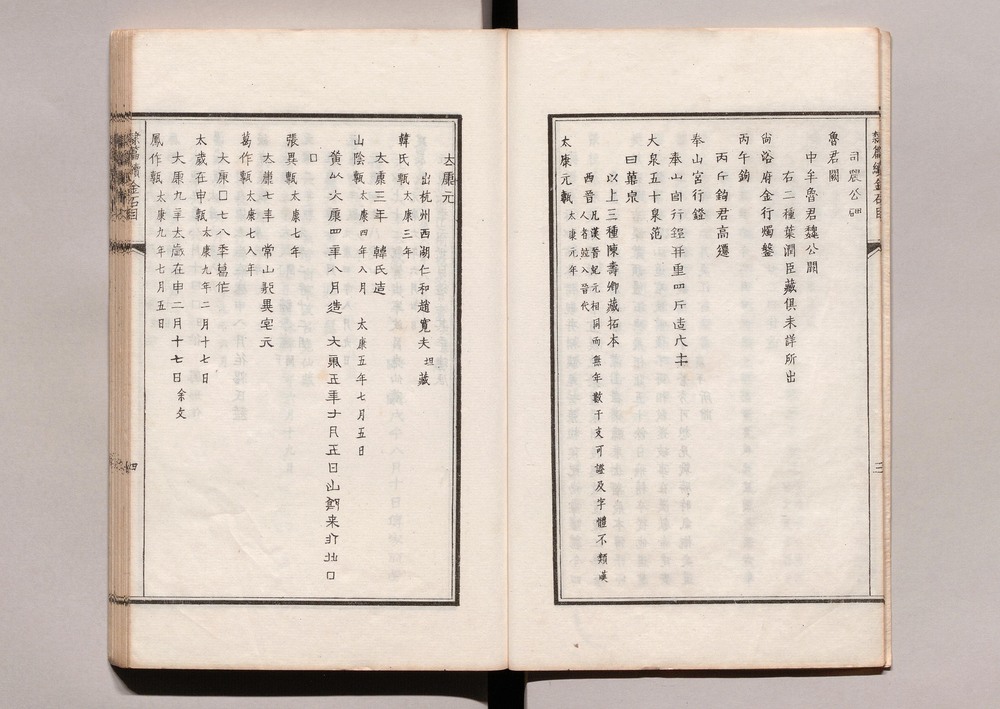 隸篇續金石目
三
司農公𠨘
魯君闕
中牟魯君魏公闕
右二種葉潤臣藏俱未詳所出
尚浴府金行燭鐅
丙午鉤
丙午鉤君高遷
奉山宮行鐙
奉山宮行鐙并重四斤造
大泉五十泉范
曰菓泉
以上三種陳壽卿藏拓本
西晉 凡漢晉紀元相同而無年數干支可證及字體不類漢
人者竝入晉代
太康元甎 太康元年
太康元
出杭州西湖仁和趙寬夫坦藏
韓氏甎 太康三年
太康三年 韓氏造
山陰甎 太康四年八月 太康五年七月五日
黃 太康四年八月造 大康五年七月五日山陰来作此口
口
張異甎 太康七年
太康七年 常山張異宅元
葛作甎 太康七八年
大康口七八季葛作
太歲在申甎 太康九年二月十七日
大康九年太歲在申二月十七日余文
鳳作甎 太康九年七月五日
隸篇續金石目
四